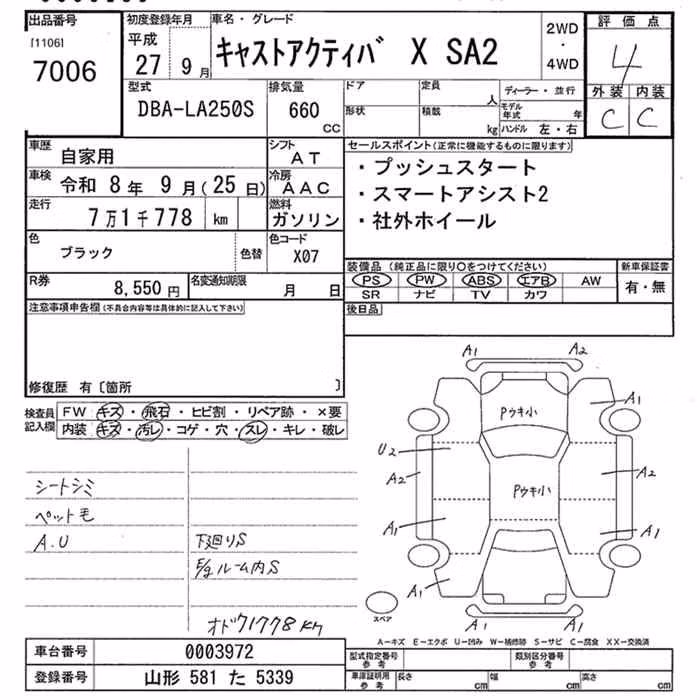 出品番号 初度登録年月 車名・グレード 2WD 評価点
[1106] 平成 ・
7006 27 9月 キャストアクティバ X SA2 4WD 4
型式 排気量 ドア 定員 人 ディーラー・並行 外装 内装
DBA-LA250S 660 CC 形状 積載 kg モデル年式 年 C C
ハンドル 左・右
車歴 自家用 シフト AT セールスポイント(正常に機能するものに限ります)
車検 令和 8年 9月(25日) 冷房 AAC ・プッシュスタート
走行 7万1千778 km 燃料 ガソリン ・スマートアシスト2
・社外ホイール
色 ブラック 色替 色コード X07
装備品(純正品に限り○をつけてください) 新車保証書
R券 8,550円 名変通知期限 月 日 PS PW ABS エアB AW 有・無
SR ナビ TV カワ
注意事項申告欄(不具合内容等は具体的に記入して下さい) 後日品
修復歴 有〔箇所 〕
検査員記入欄 FW キズ・飛石・ヒビ割・リペア跡・×要
内装 キズ・汚レ・コゲ・穴・スレ・キレ・破レ
A1 A2
Pウキ小 A1
U2
A2 Pウキ小 A2
A1 A1
A1 A1
A1 A2
シートシミ
ペット毛
A.U 下廻りS
E/gルーム内S
オド71778km
スペア
A-キズ E-エクボ U-凹み W-補修跡 S-サビ C-腐食 XX-交換済
車台番号 0003972 型式指定番号 参考 類別区分番号 参考
登録番号 山形 581 た 5339 車庫証明用 参考 長さ cm 幅 cm 高さ cm